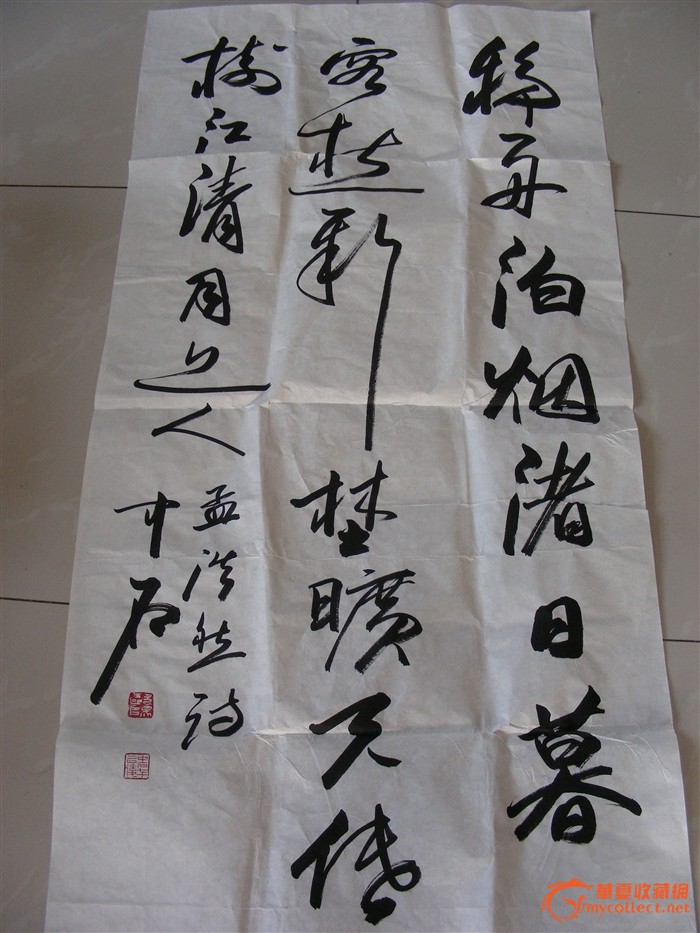 移舟泊烟渚日暮
客愁新埜曠天低
樹江清月近人
孟浩然詩
中石
華夏收藏網
mycollect.net